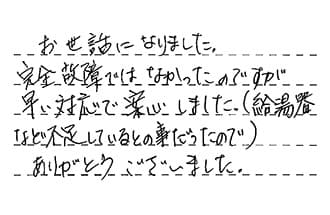 お世話になりました。
完全故障ではなかったのですが
早い対応で安心しました。(給湯器
など不足しているとの事だったので)
ありがとうございました。